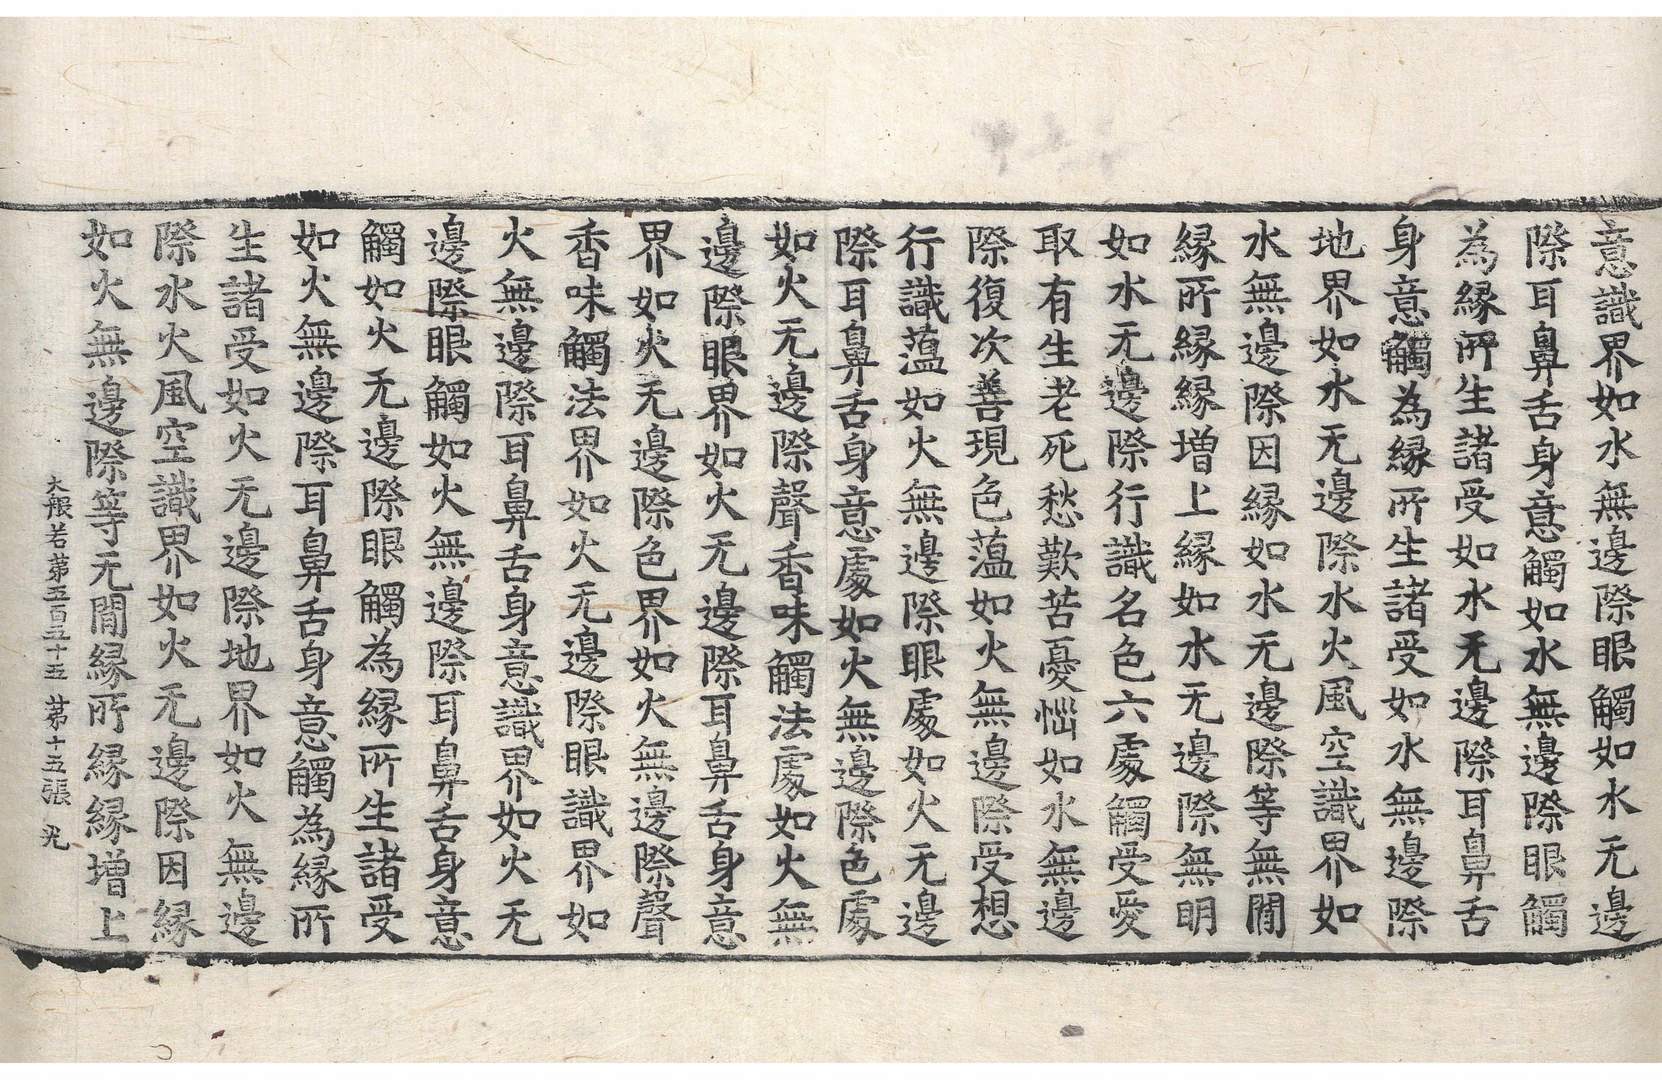 意識界如水無邊際眼觸如水无邊
際耳鼻舌身意觸如水無邊際眼觸
為縁所生諸受如水无邊際耳鼻舌
身意觸為縁所生諸受如水無邊際
地界如水无邊際水火風空識界如
水無邊際因縁如水无邊際等無閒
縁所縁縁增上縁如水无邊際無明
如水无邊際行識名色六處觸受愛
取有生老死愁歎苦憂惱如水無邊
際復次善現色薀如火無邊際受想
行識薀如火無邊際眼處如火无邊
際耳鼻舌身意處如火無邊際色處
如火无邊際聲香味觸法處如火無
邊際眼界如火无邊際耳鼻舌身意
界如火无邊際色界如火無邊際聲
香味觸法界如火无邊際眼識界如
火無邊際耳鼻舌身意識界如火无
邊際眼觸如火無邊際耳鼻舌身意
觸如火无邊際眼觸為縁所生諸受
如火無邊際耳鼻舌身意觸為縁所
生諸受如火无邊際地界如火無邊
際水火風空識界如火无邊際因縁
如火無邊際等无閒縁所縁縁增上
大般若第五百五十五 第十五張 光